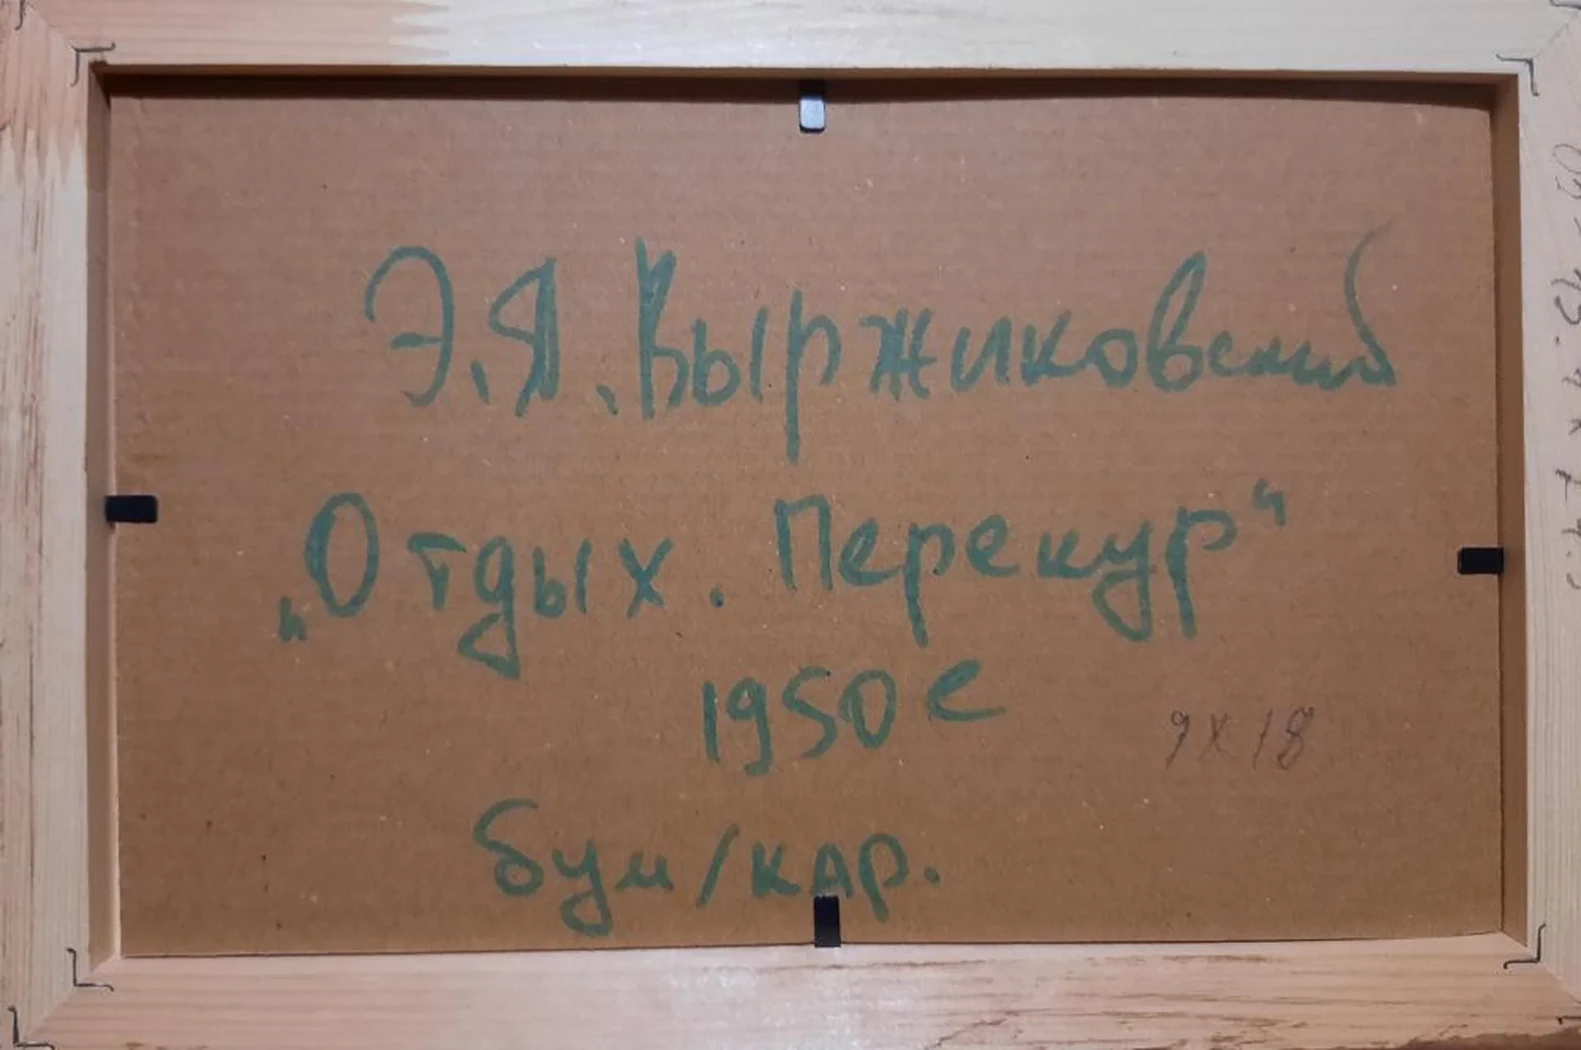 Э.Я. Выржиковский
„Отдых. Перекур“
1950е
9x18
бум/кар.